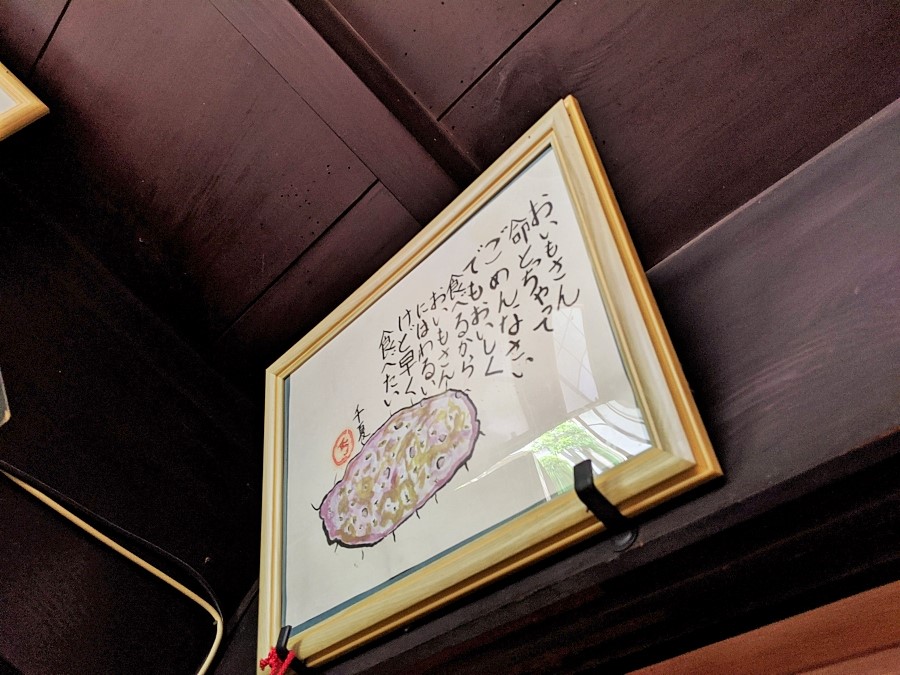 おいもさん
命とっちゃって
ごめんなさい
でもおいしく
食べるから
おいもさん
にはわるい
けど早く
食べたい
千夏